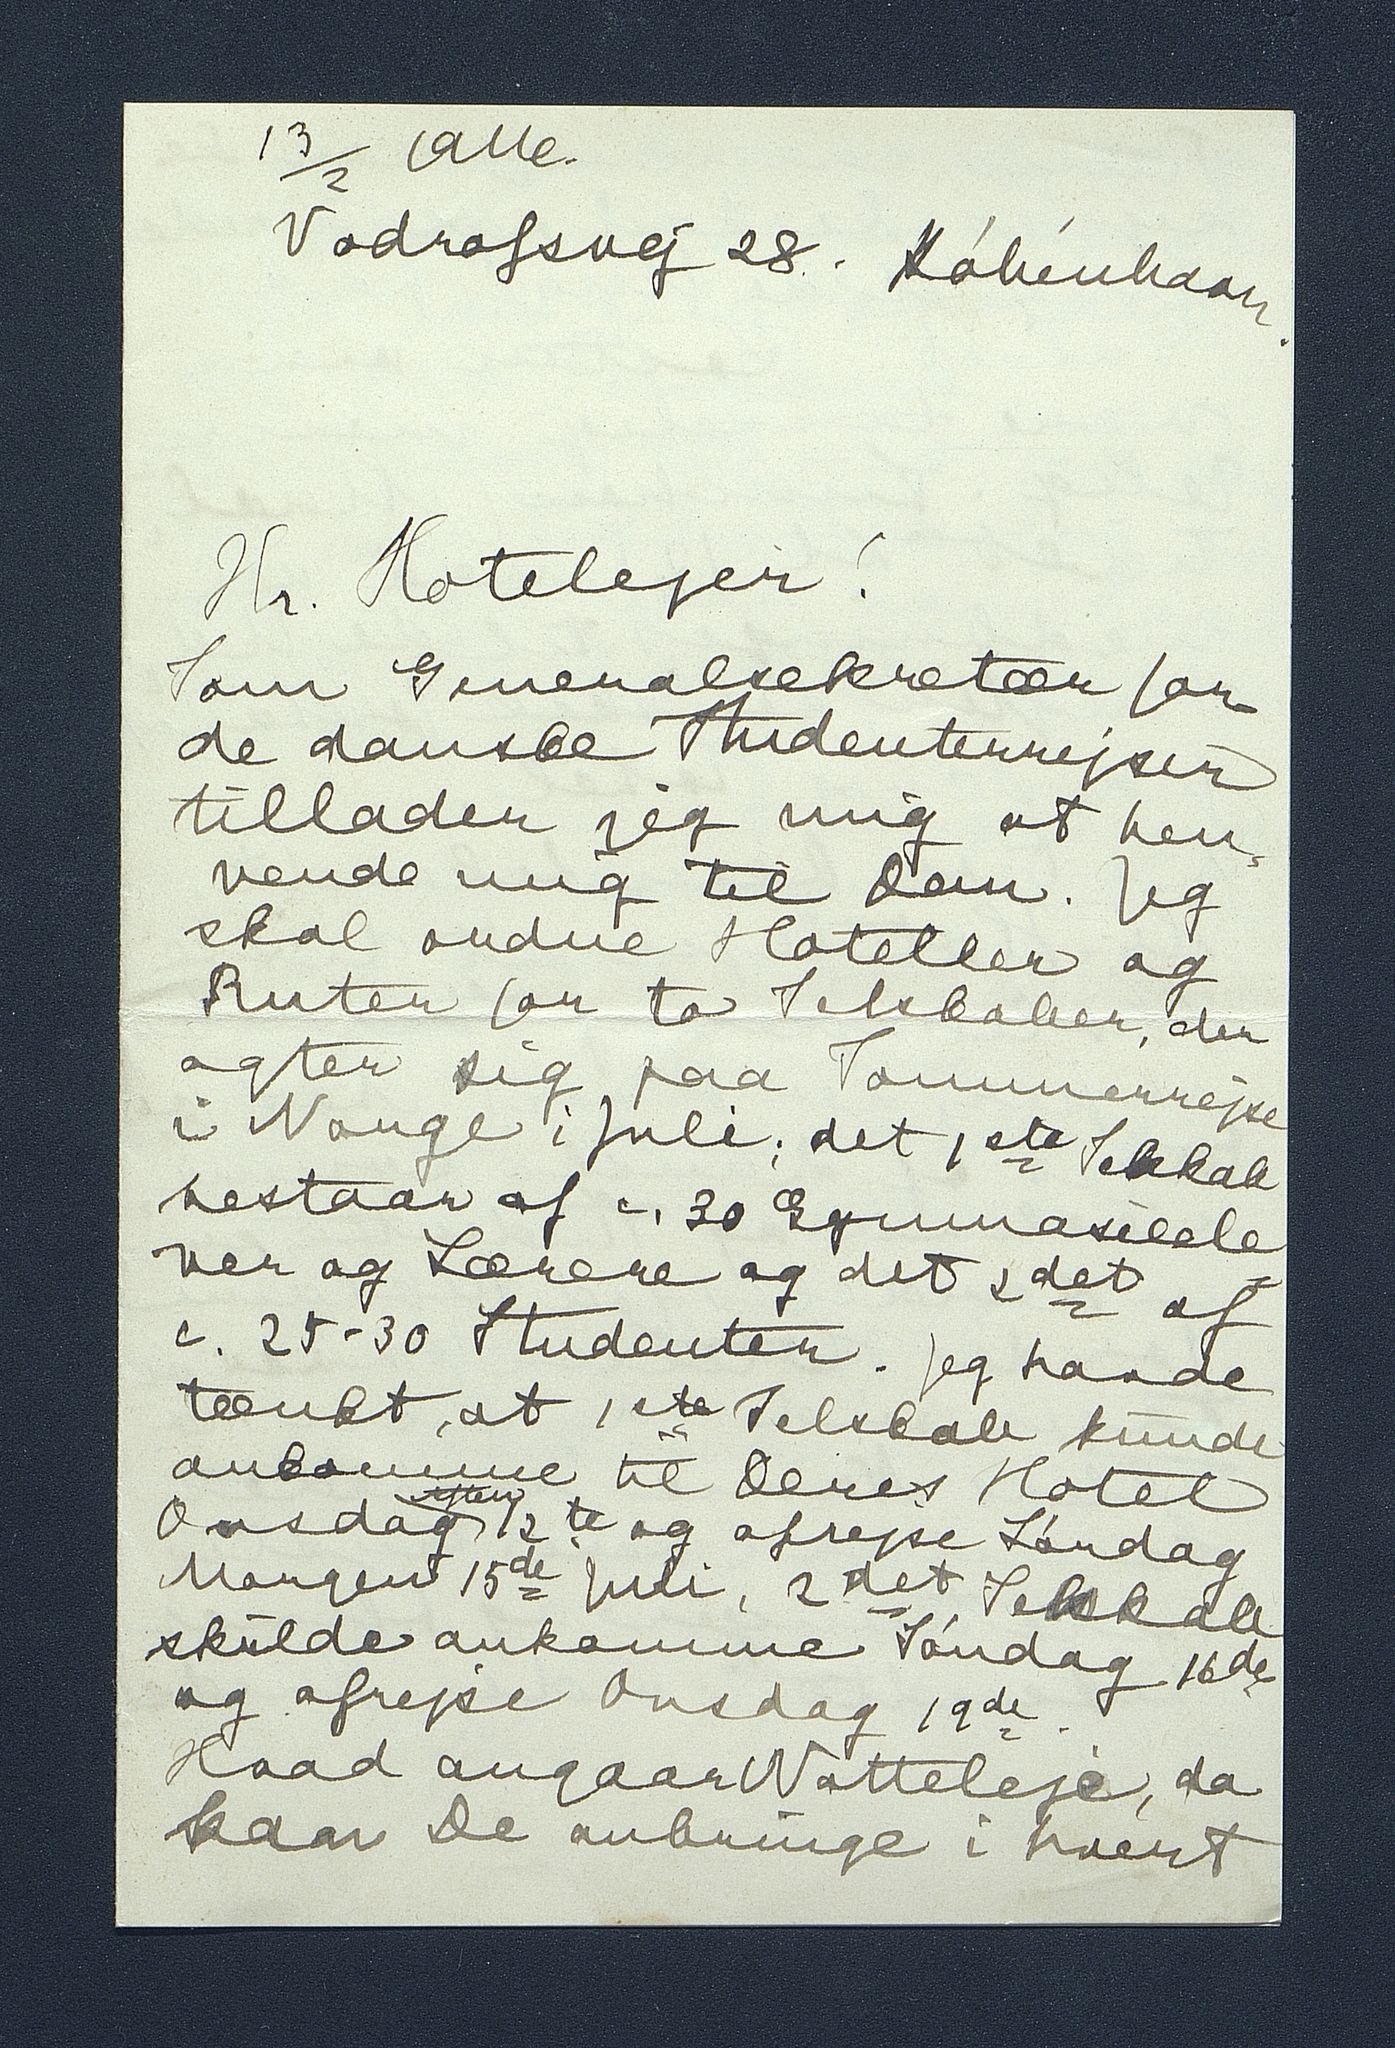 13/2
Vodrofsvej 28. København.
Hr. Hotelejer!
Som Generalsekretær for
de danske Studenterrejser
tillader jeg mig at hen-
vende mig til Dem. Jeg
skal ordne Hoteller og
Ruter for to Selskaber, der
agter sig paa Sommerrejse
i Norge i Juli; det 1ste Selskab
bestaar af c. 30 Gymnasieele
ver og Lærere og det 2det af
c. 25-30 Studenter. Jeg havde
tænkt, at 1ste Selskab kunde
ankomme til Deres Hotel
Onsdag Aften 12te og afrejse Søndag
Morgen 15de Juli, 2det Selskab
skulde ankomme Søndag 16de
og afrejse Onsdag 19de.
Hvad angaar Natteleje, da
kan De anbringe i hvert